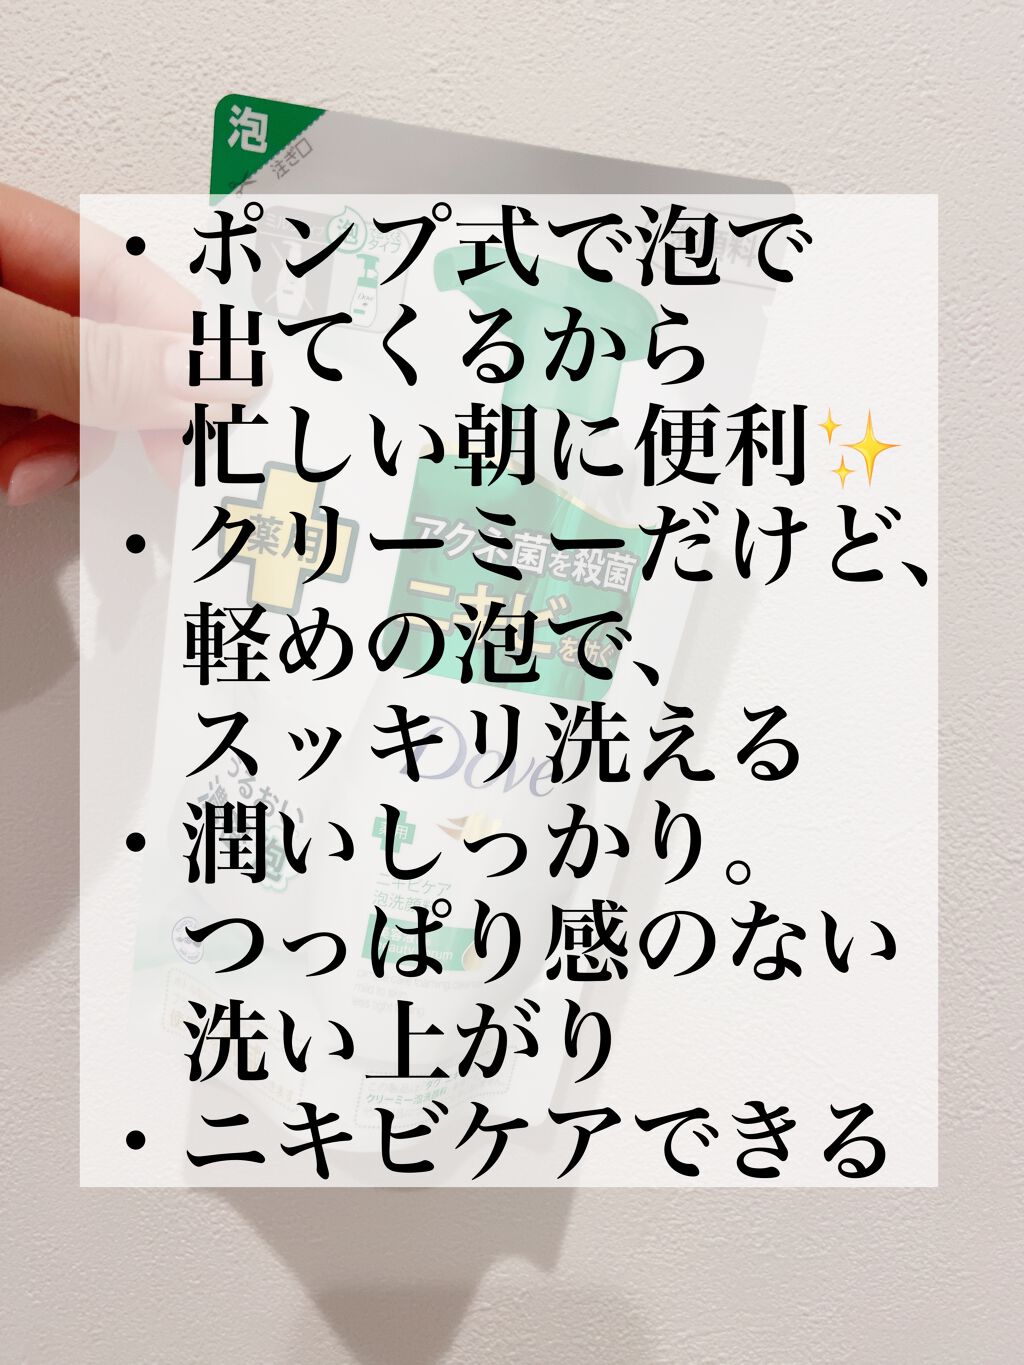 泡
注ぎ口
・ポンプ式で泡で
出てくるから
忙しい朝に便利✨
・クリーミーだけど、
軽めの泡で、
スッキリ洗える
・潤いしっかり。
つっぱり感のない
洗い上がり
・ニキビケアできる
泡
タイプ
薬用
アクネ菌を殺菌
ニキビを防ぐ
Dove
薬用
ニキビケア
クリーミー泡洗顔料